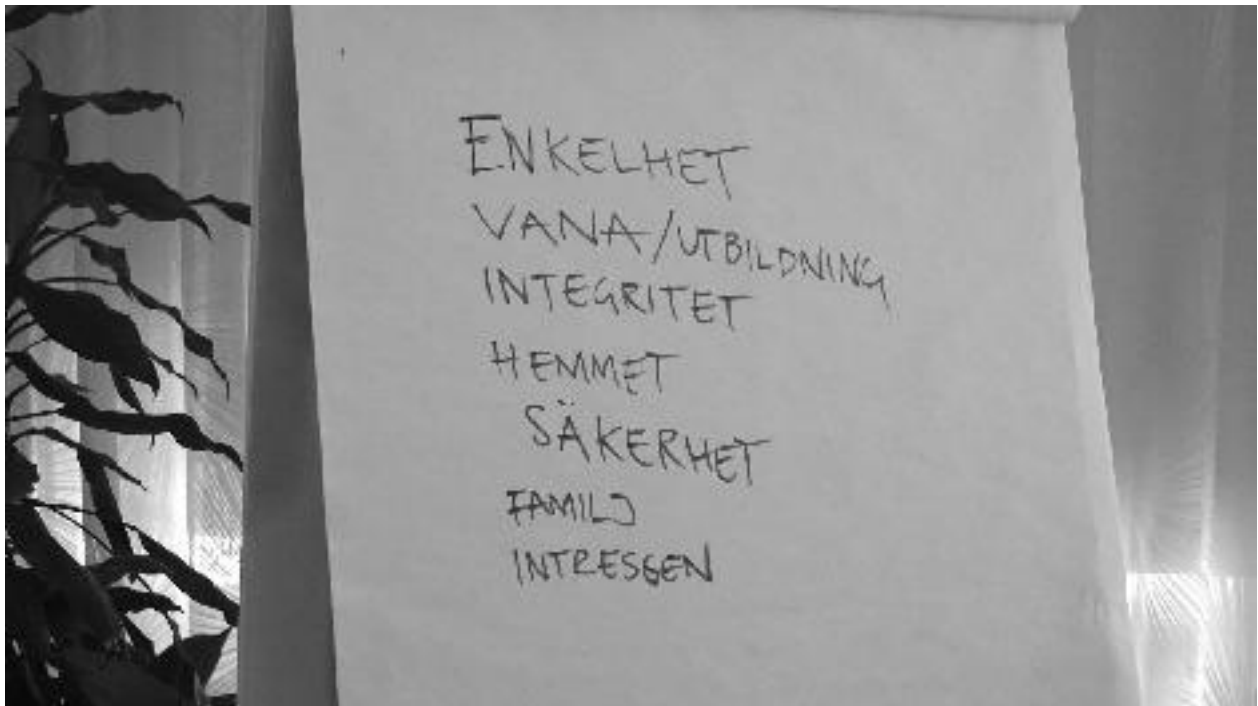 ENKELHET
VANA/UTBILDNING
INTEGRITET
HEMMET
SÄKERHET
FAMILJ
INTRESSEN